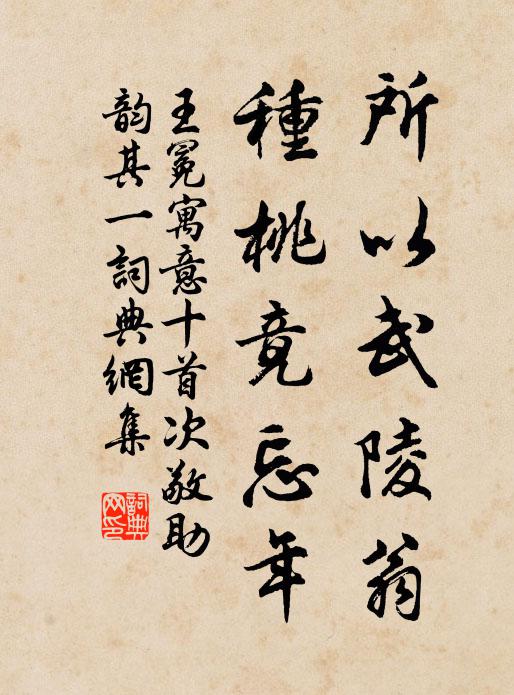 所以武陵翁
種桃竟忘年
王冕寓意十首次敬助
韵其一詞典網集
詞典
网印